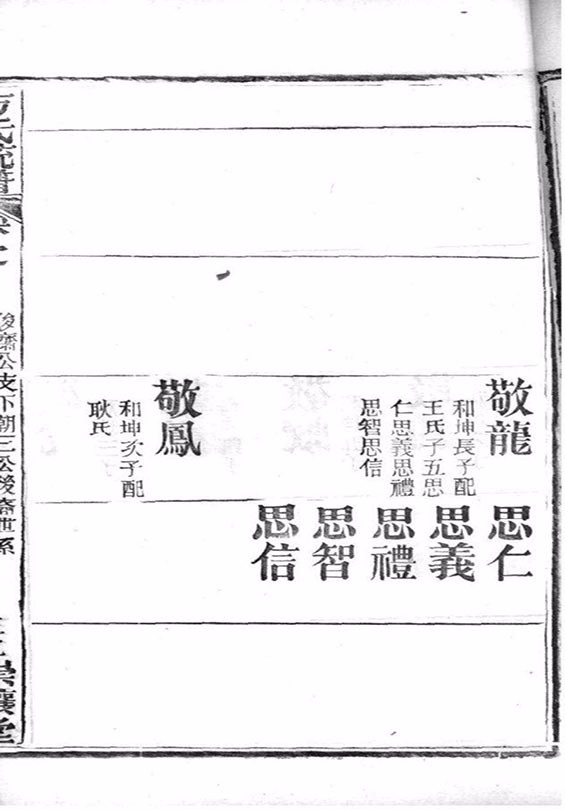 敬龍
和坤長子配
王氏子五思
仁思義思禮
思智思信
敬鳳
和坤次子配
耿氏
思仁
思義
思禮
思智
思信
氏宗譜
後裔公支下朝三公後裔世系
崇讓堂